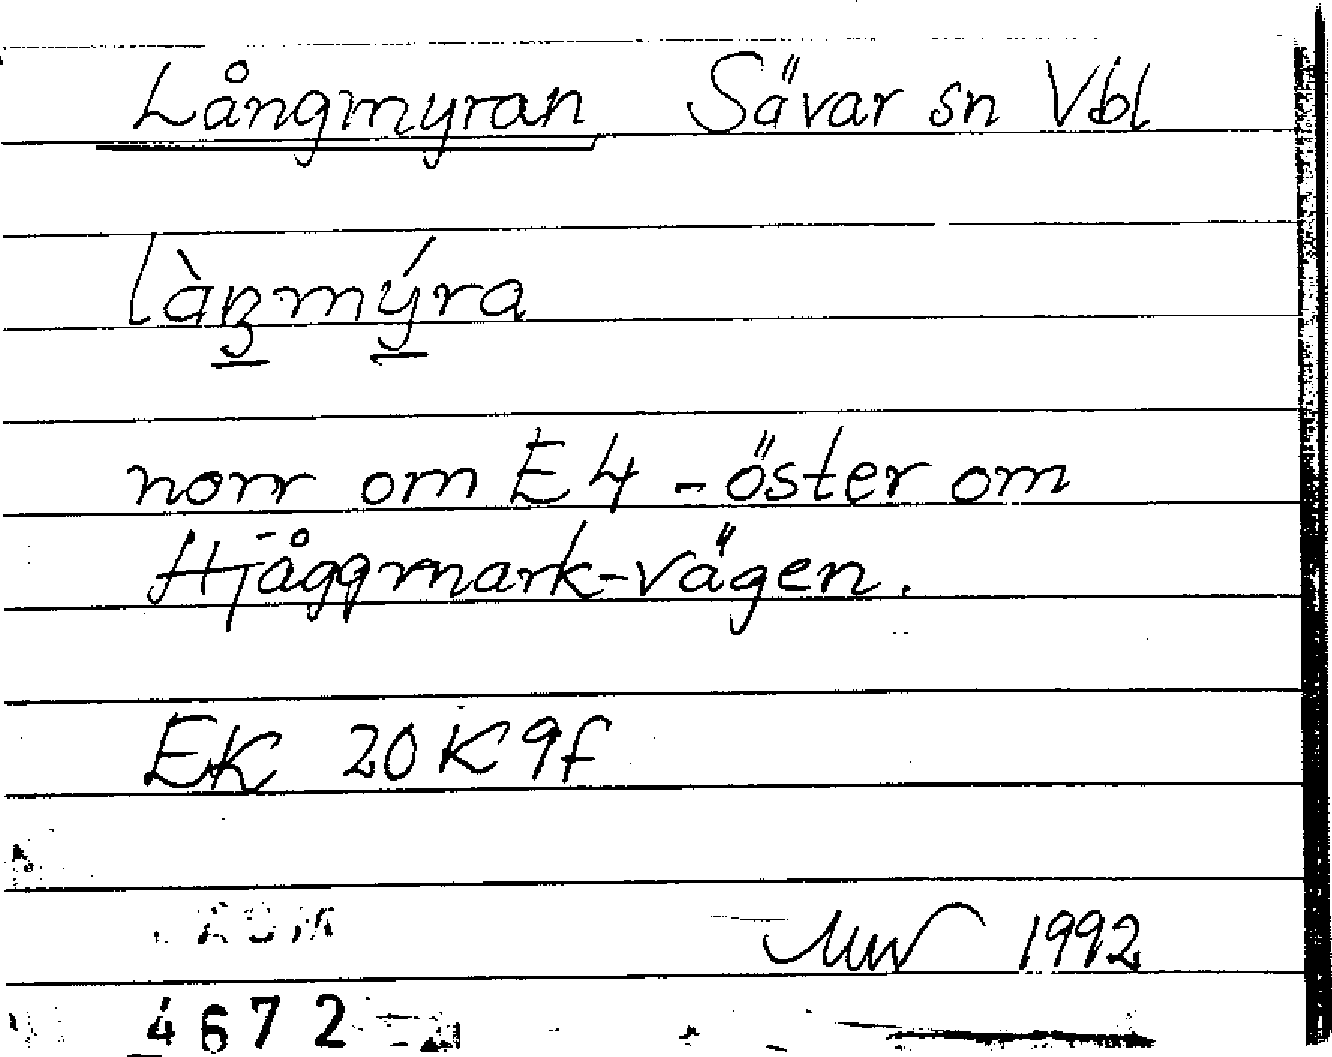 Långmyran Sävar sn Vbl
làŋmýra
norr om E4 - öster om
Hjåggmark-vägen.
EK 20K 9f
1992
4672